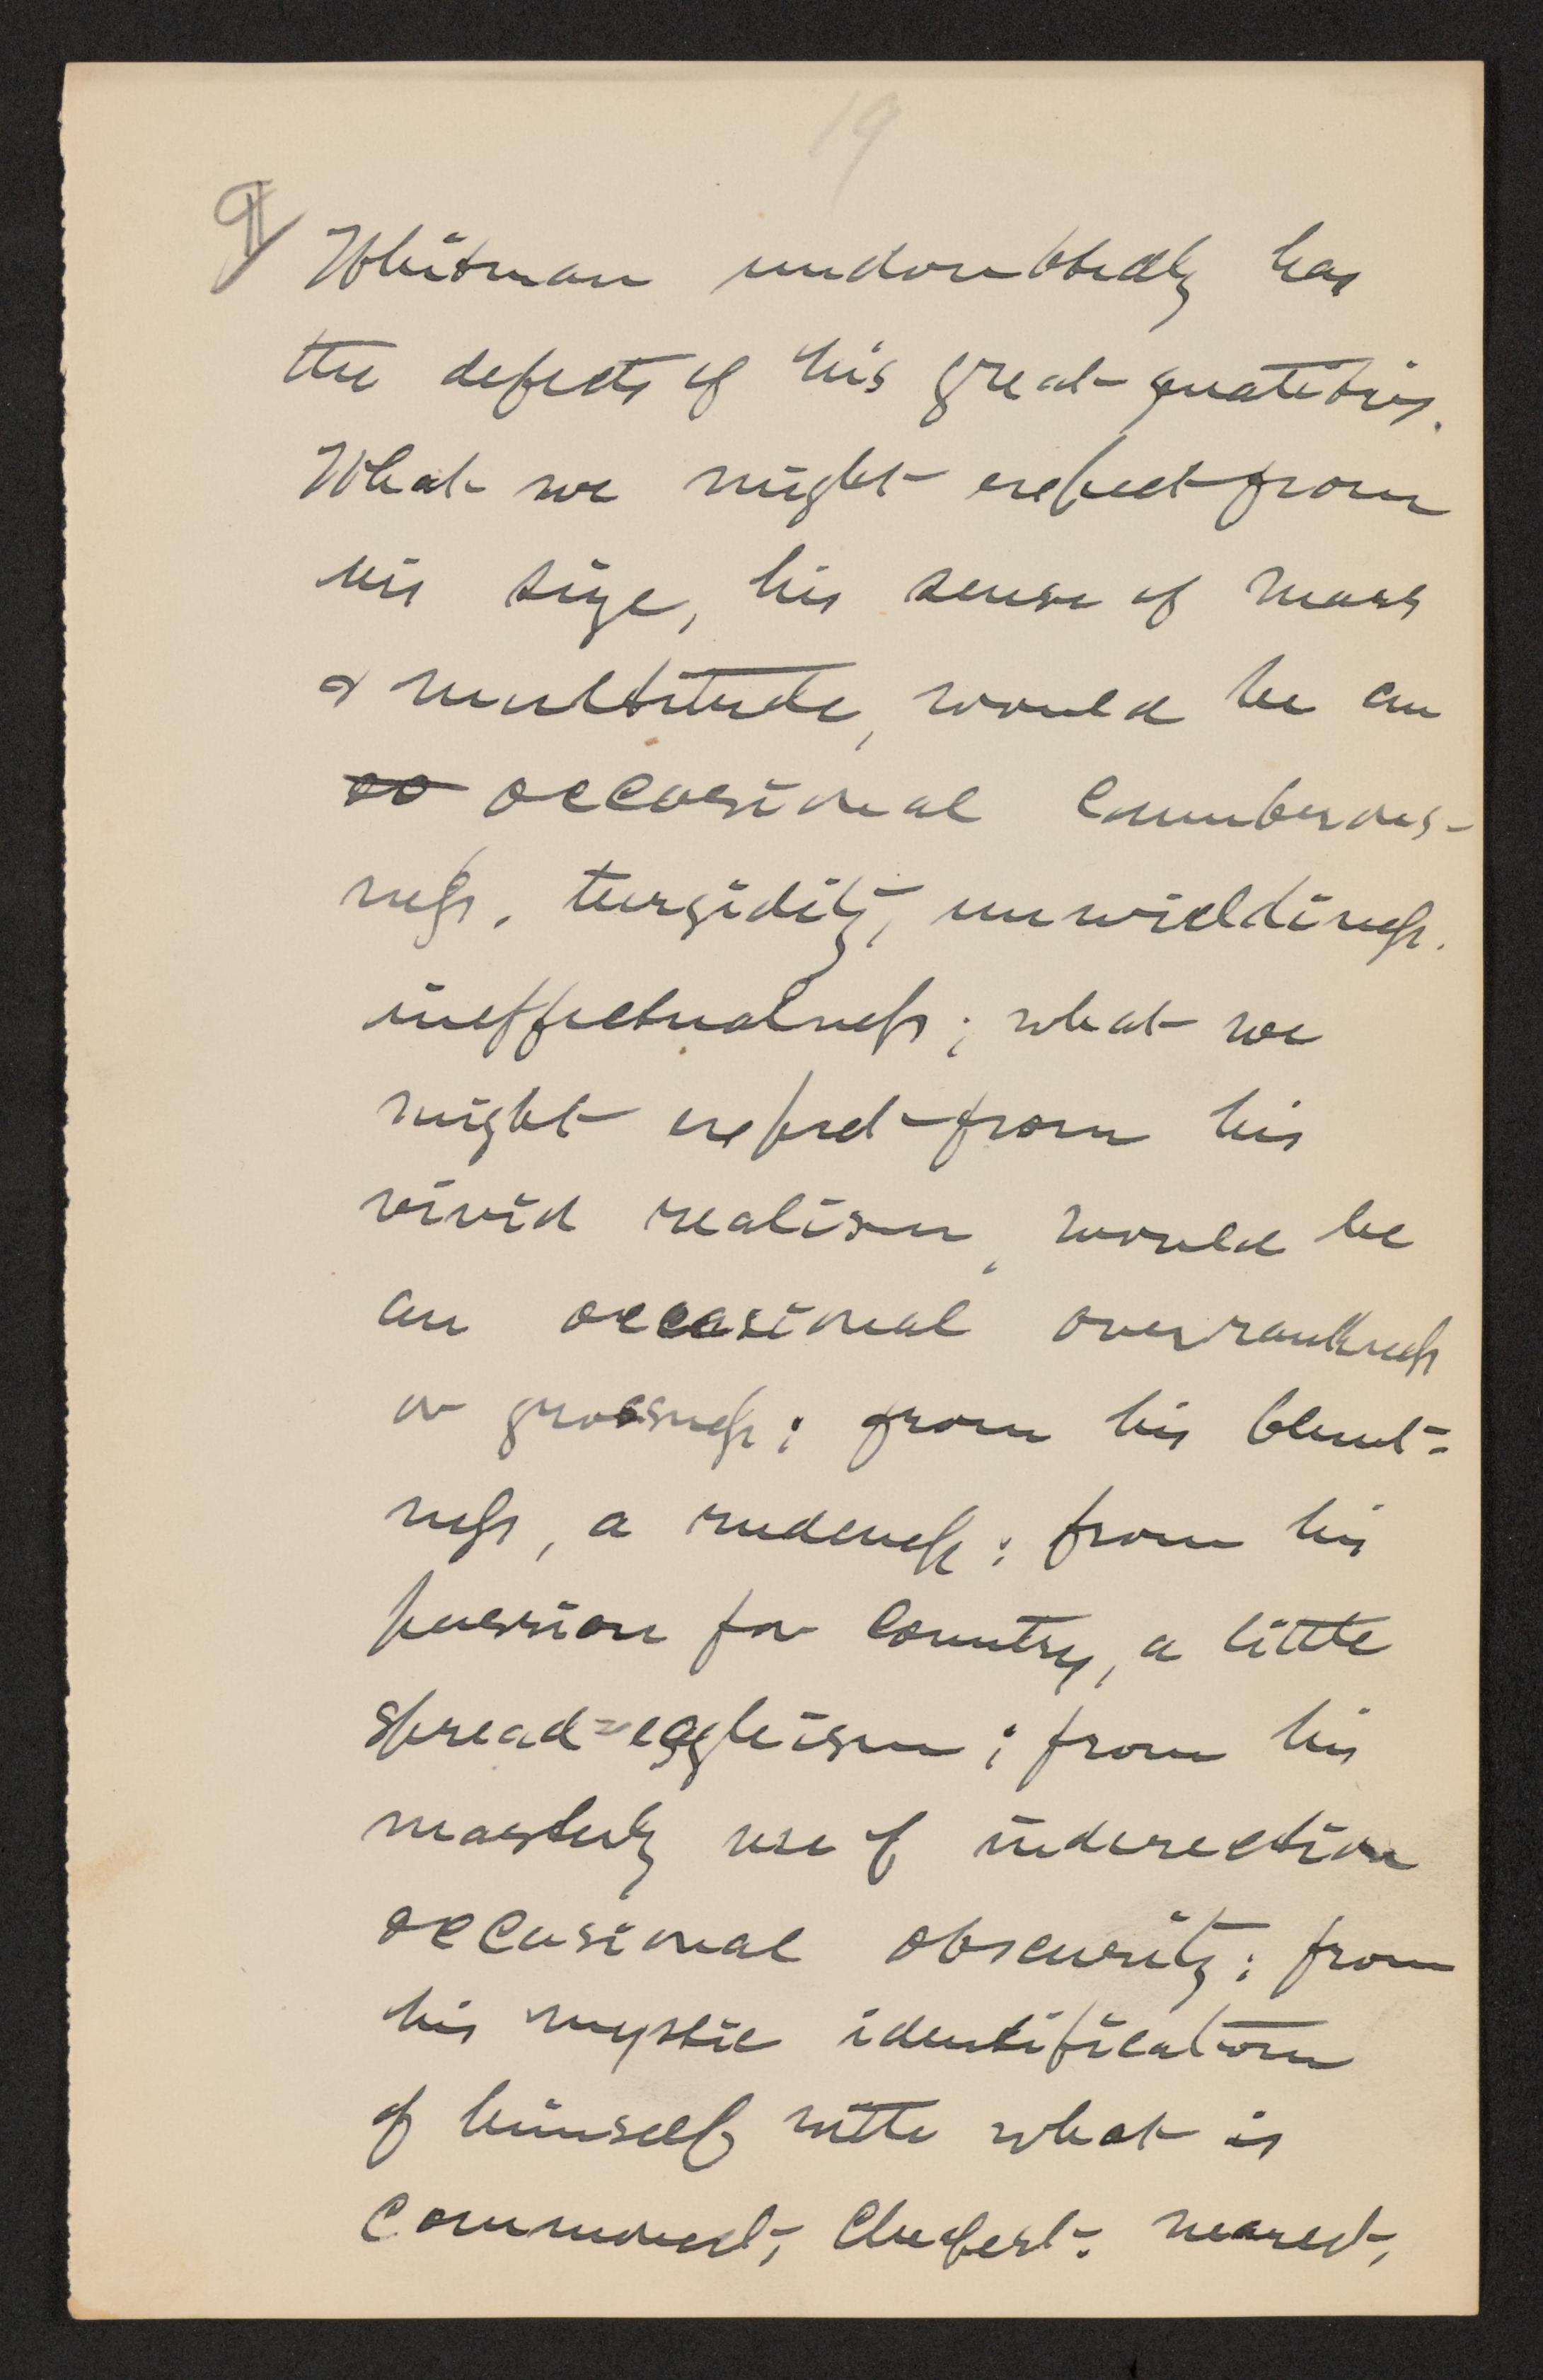 19
¶ Whitman undoubtedly has
the defects of his great qualities.
What we might expect from
his size, his sense of mass
& multitude, would be an
so occasional cumberous-
ness, turgidity, unwieldiness,
ineffectualness; what we
might expect from his
vivid realism, would be
an occasional overrankness
or grossness; from his blunt-
ness, a rudeness; from his
passion for country, a little
spread-eagleism; from his
masterly use of indirection
occasional obscurity; from
his mystic identification
of himself with what is
commonest, cheapest, nearest,